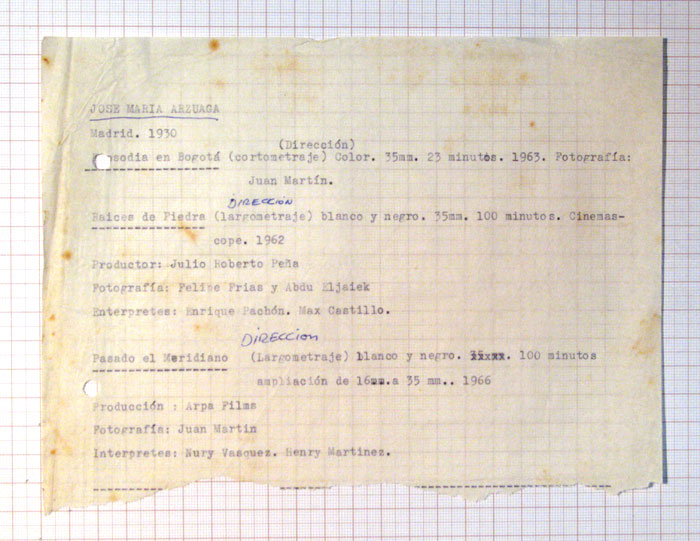 JOSE MARIA ARZUAGA
Madrid. 1930
(Dirección)
sodia en Bogotá (cortometraje) Color. 35mm. 23 minutos. 1963. Fotografía:
Juan Martín.
DIRECCION
Raices de Piedra (largometraje) blanco y negro. 35mm. 100 minutos. Cinemas-
cope. 1962
Productor: Julio Roberto Peña
Fotografía: Felipe Frias y Abdu Eljaiek
Enterpretes: Enrique Pachón. Max Castillo.
DIRECCION
Pasado el Meridiano (Largometraje) blanco y negro. 100 minutos
ampliación de 16mm.a 35 mm.. 1966
Producción : Arpa Films
Fotografía: Juan Martin
Interpretes: Nury Vasquez. Henry Martinez.